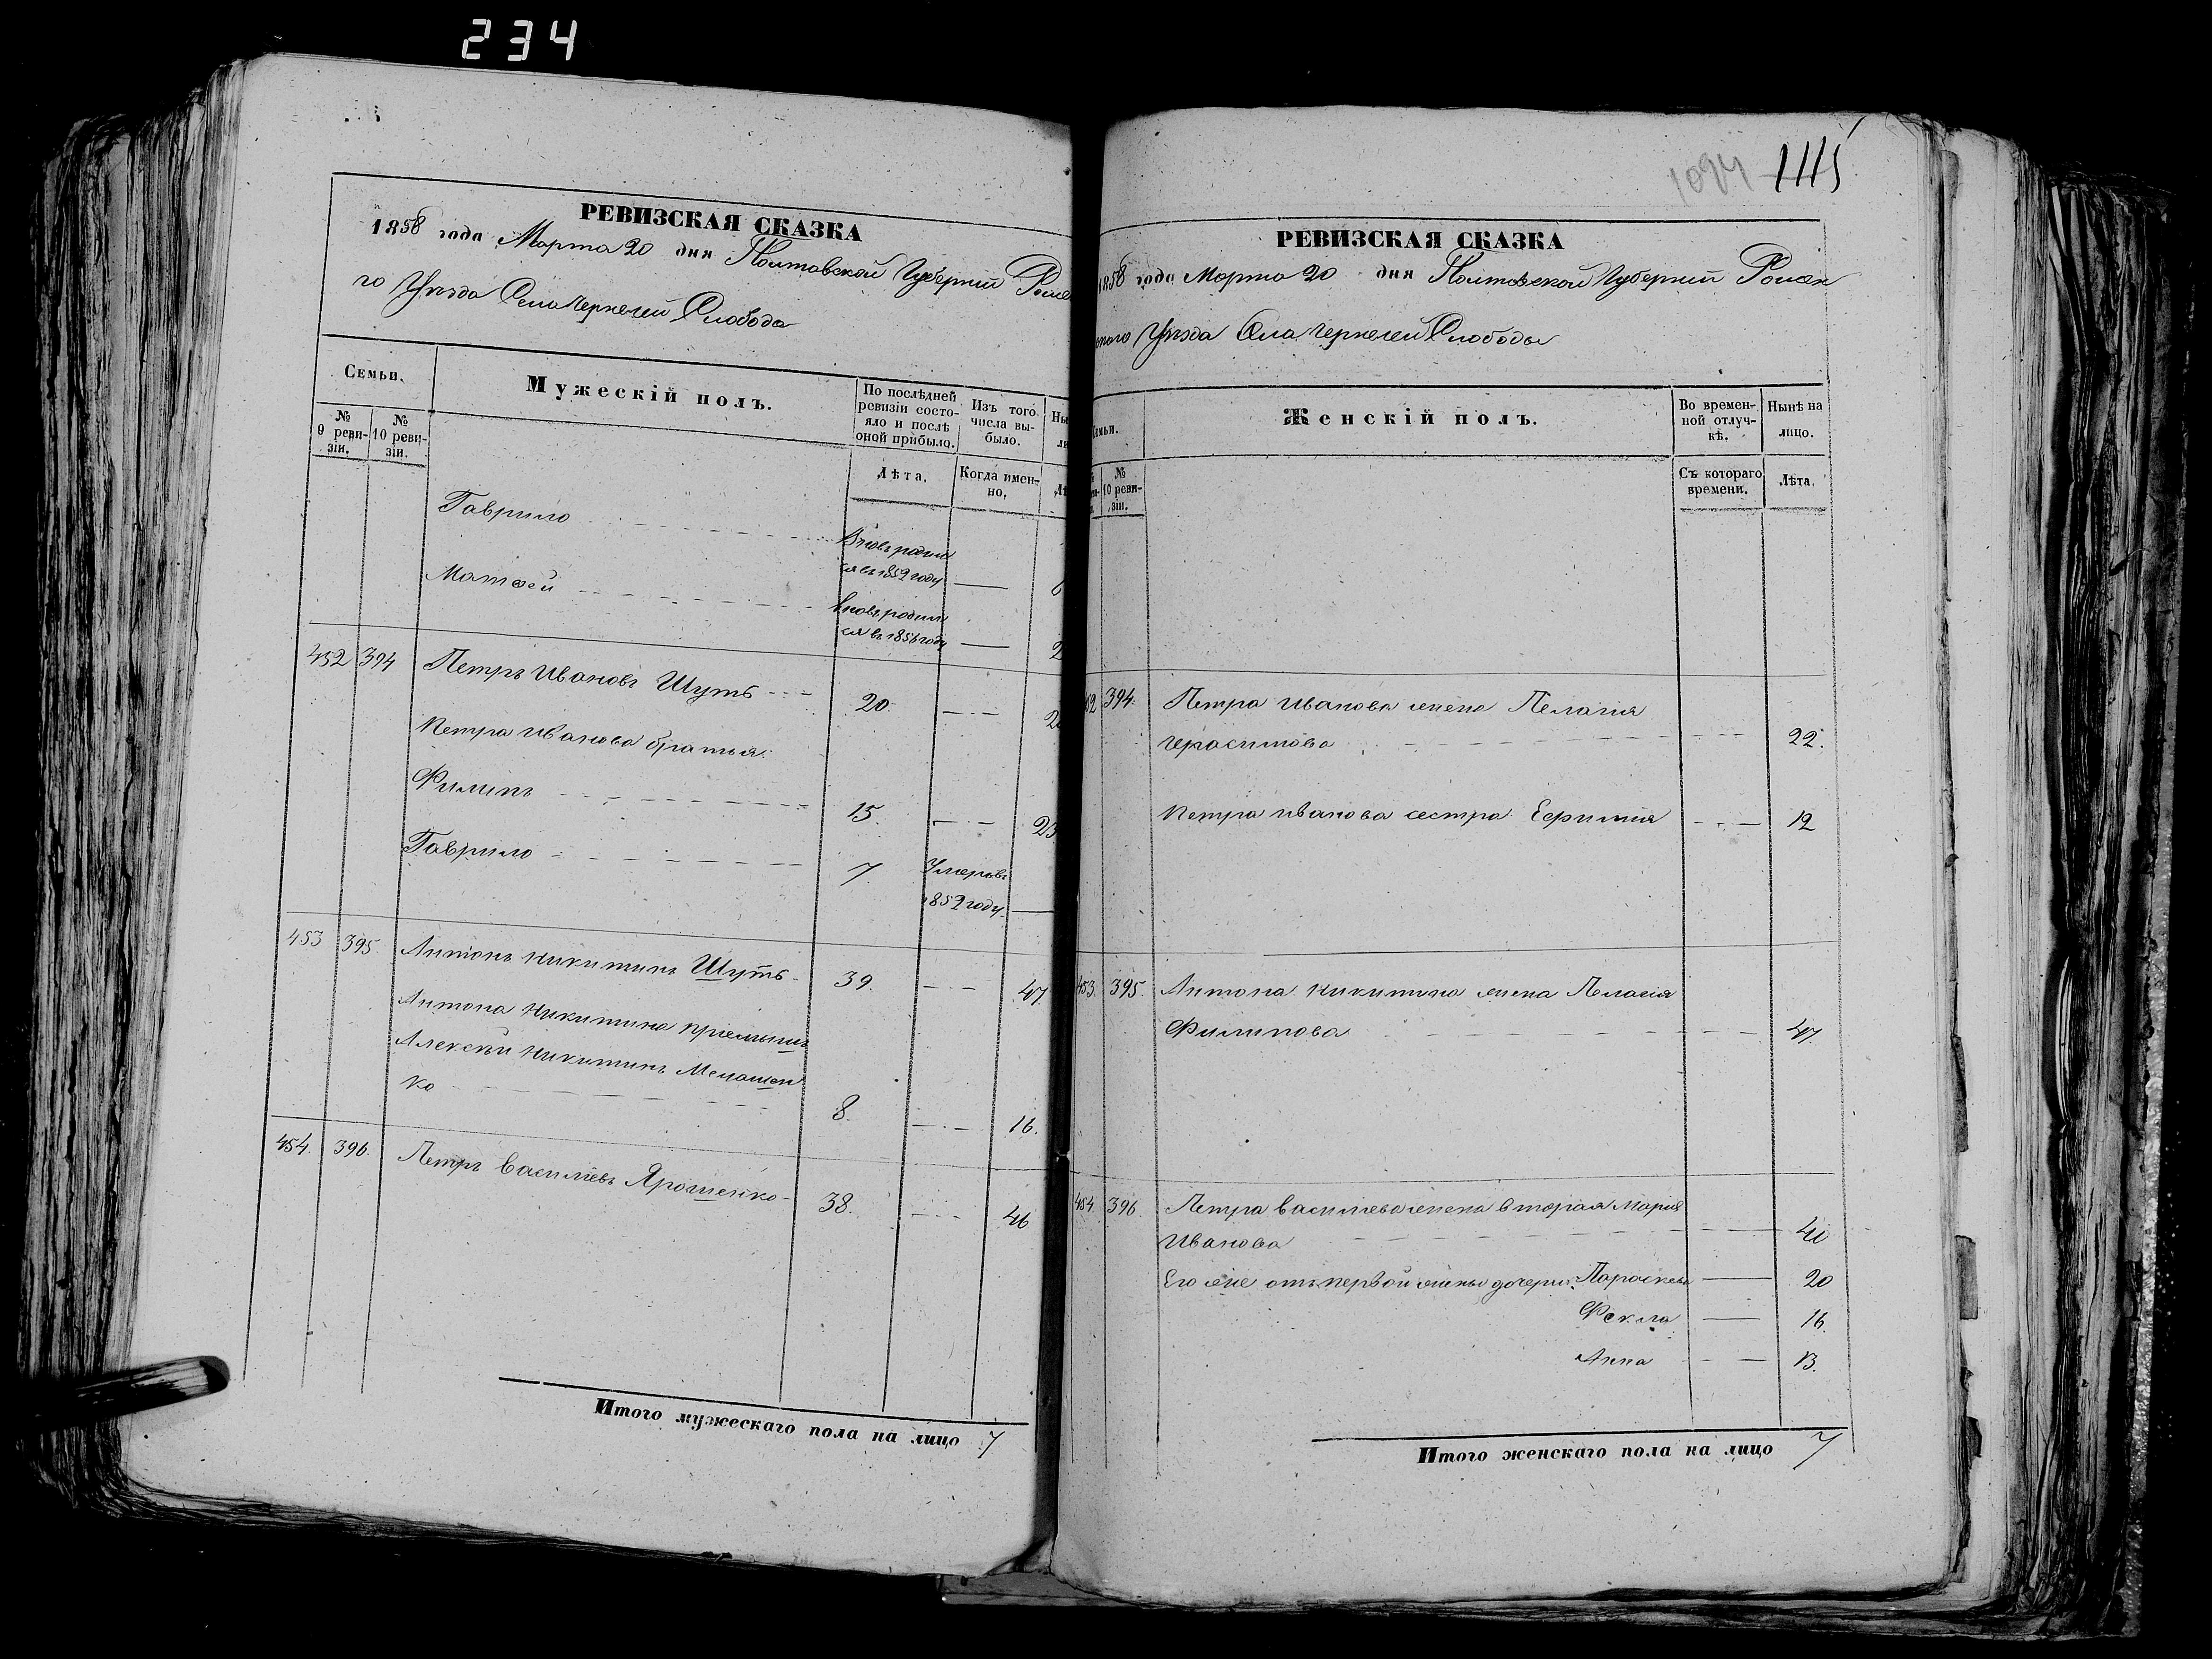 234
РЕВИЗСКАЯ СКАЗКА
1858 года Марта 20 дня Полтавской Губернии Роме
го Уѣзда Села Чернечей Слобода
Семьи.
Мужескій полъ.
По послѣдней ревизіи состояло и послѣ оной прибыло.
Изъ того числа выбыло.
Ны
ли
№ 9 ревизіи.
№ 10 ревизіи.
Лѣта.
Когда именно.
Лѣ
Гаврило
Вновь родил
ся въ 1852 году — 6
Матвей
Вновь родил
ся въ 1856 году — 2
452 394 Петръ Ивановъ Шуть 20 — 2
Петра Иванова братья:
Филипъ 15. — 23
Гаврило 7. Умеръ въ
1852 году. —
453 395. Антонъ Никитинъ Шуть 39. — 47.
Антона Никитина приемышъ
Алексѣй Никитинъ Мелашен
ко 8. — 16.
454. 396. Петръ Васильевъ Ярошенко 38. — 46
Итого мужескаго пола на лицо 7
1094 1115
РЕВИЗСКАЯ СКАЗКА
1858 года Марта 20 дня Полтавской Губернии Ромен
скаго Уѣзда Села Чернечей Слободы
емьи.
Женскій полъ.
Во временной отлучкѣ.
Нынѣ на лицо.
№ 10 ревизіи.
Съ котораго времени.
Лѣта.
52 394. Петра Иванова жена Пелагия
Герасимова — 22.
Петра Иванова сестра Ефимия — 12
453. 395. Антона Никитина жена Пелагия
Филипова — 47.
454. 396. Петра Васильева жена вторая Мария
Иванова — 40
Его же отъ первой жены дочери: Параскева — 20
Фекла — 16.
Анна — 13.
Итого женскаго пола на лицо 7